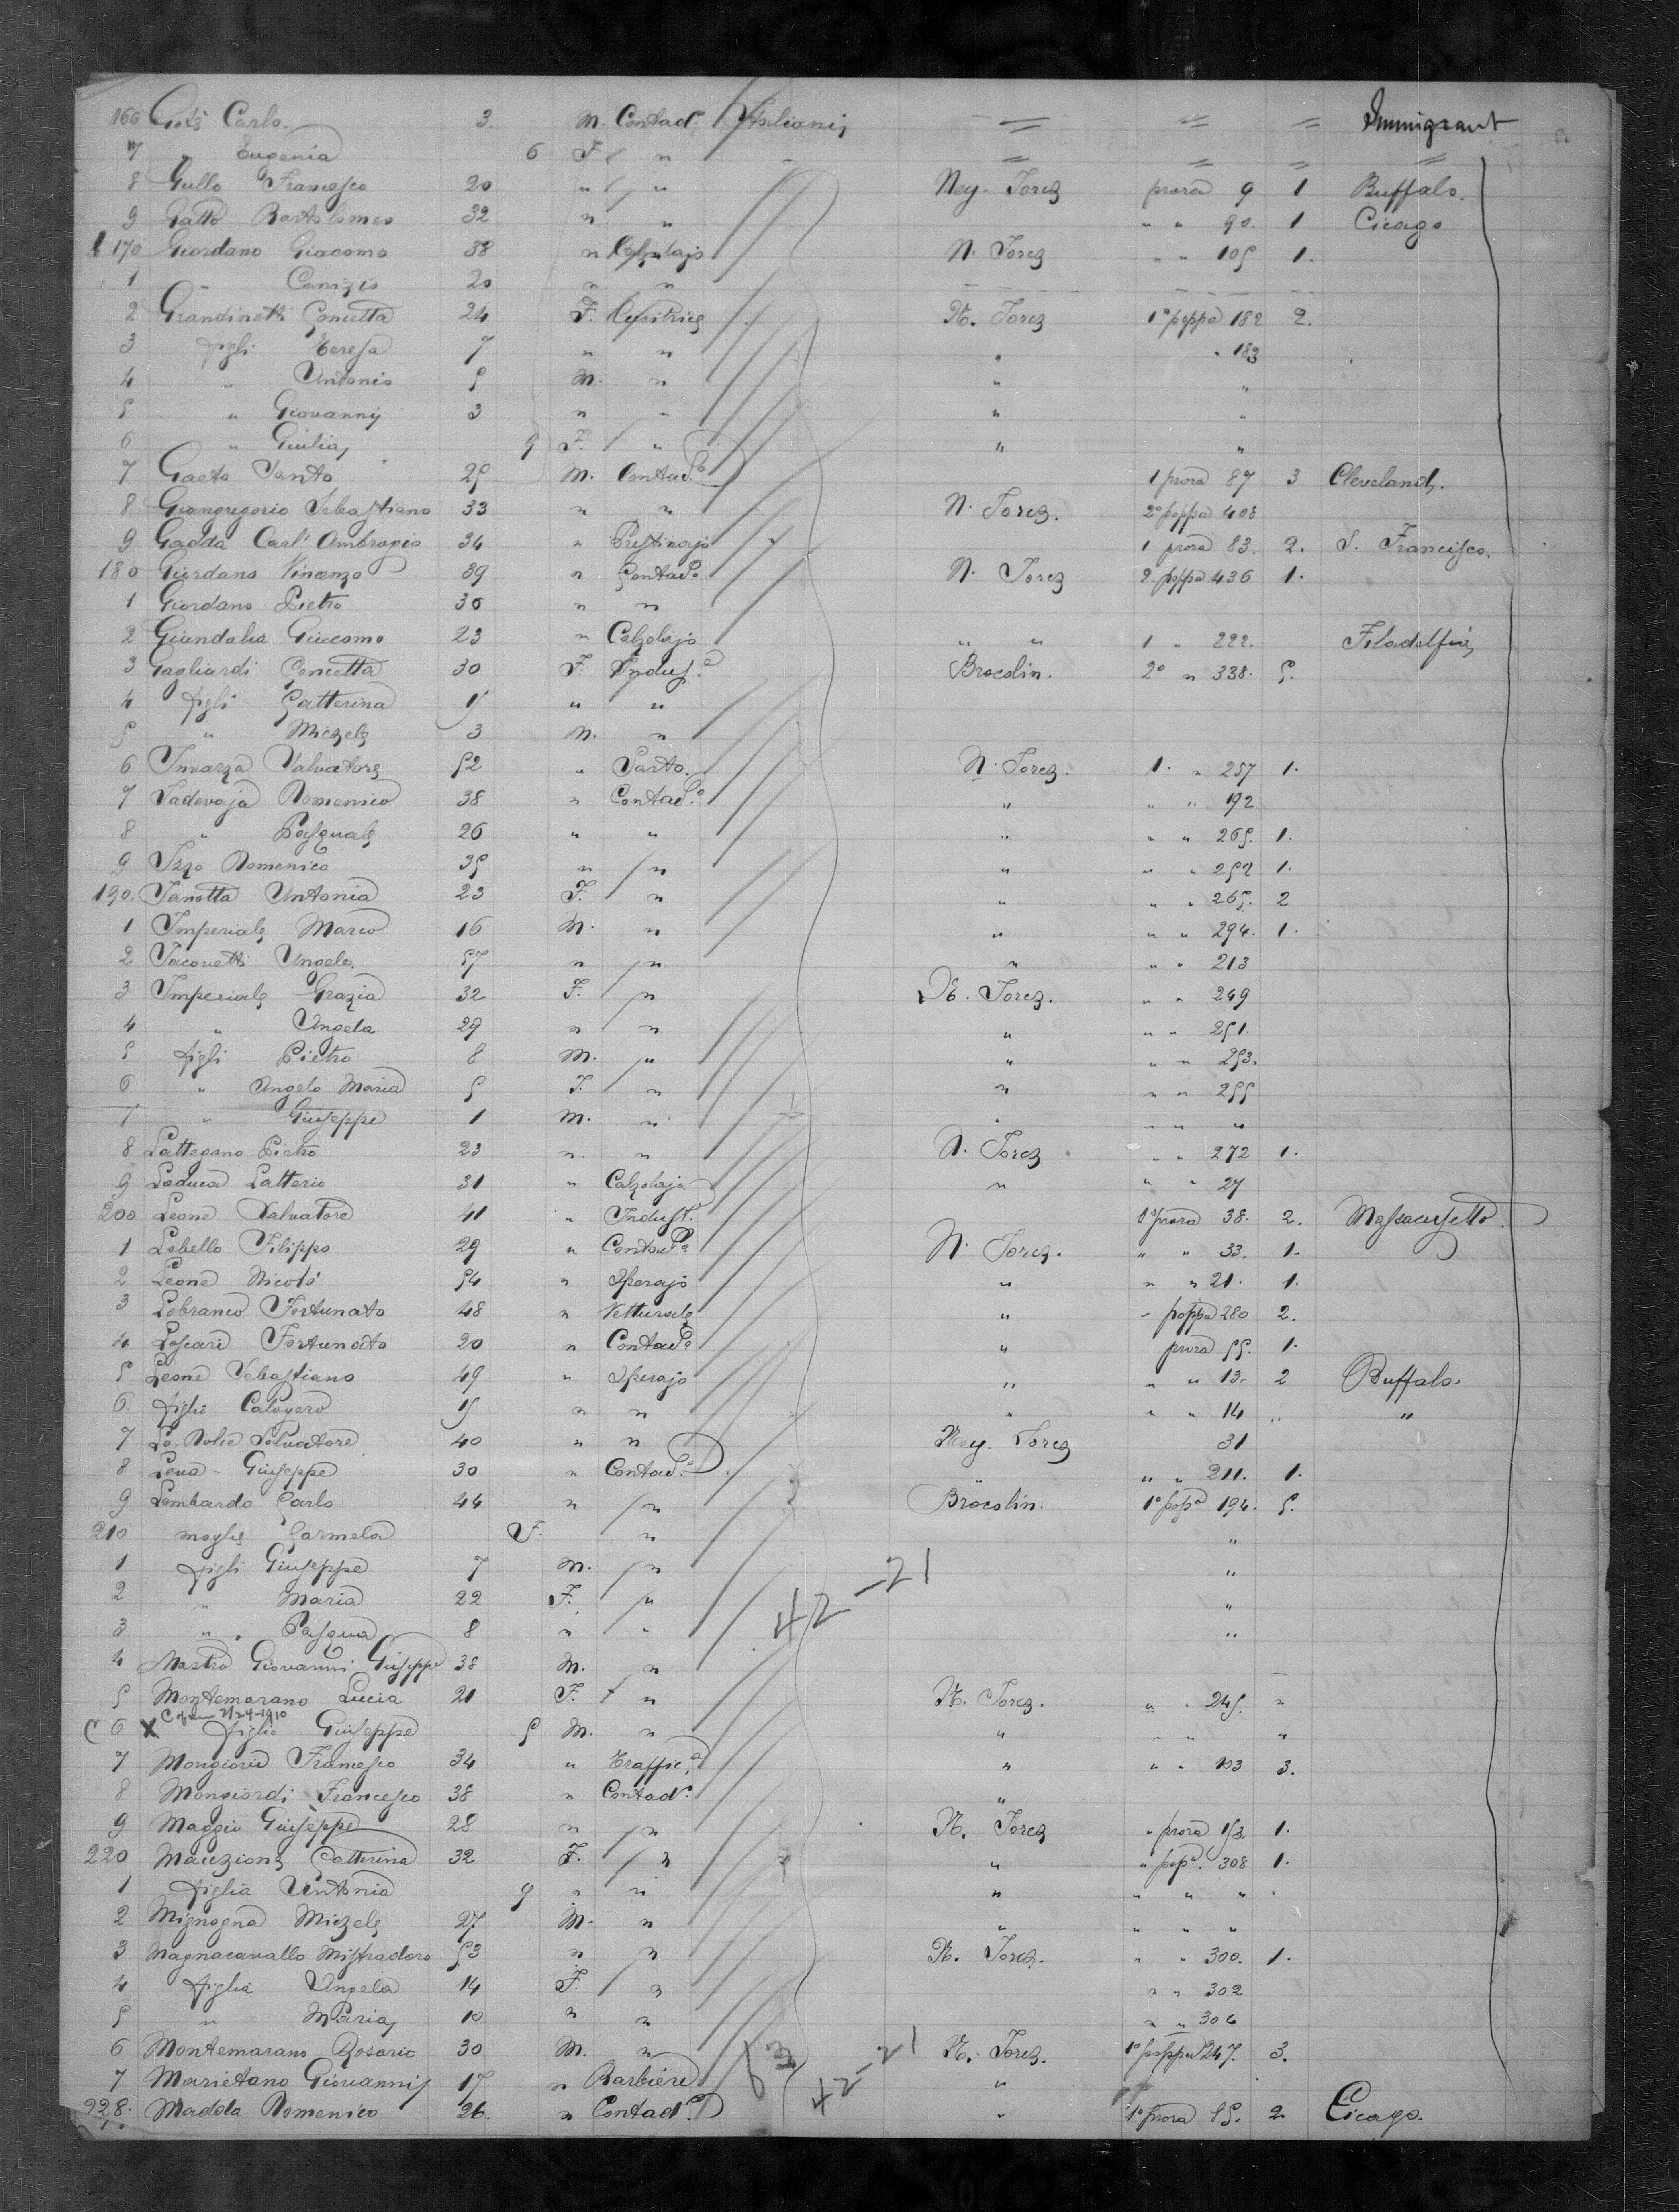 166 Carlo. 3. M. Contad. Italiani = = = Immigrant
7 " Eugenia 6 F. " = = = =
8 Gullo Francesco 20 " " Ney-Jorch prora 9 1 Buffalo.
9 Gatto Bartolomeo 32 " " " " 90. 1 Cicago
170 Giordano Giacomo 38 " Calzolajo N. Jorch " " 105 1.
1 " 20 " "
2 Grandinetti Concetta 24 F. Cucitrice N. Jorch 1° poppa 182 2.
3 figli Teresa 7 " " " " 183
4 " Antonio 5 M. " " "
5 " Giovanni 3 " " " "
6 " Giulia 9 F. " " "
7 Gaeta Santo 25 M. Contad.o 1 prora 87 3 Cleveland.
8 Giangregorio Sebastiano 33 " " N. Jorch. 2° poppa 408
9 Gadda Carl' Ambrogio 34 " Prestinajo 1 prora 83. 2. S. Francisco.
180 Giordano Vincenzo 39 " Contad.o N. Jorch 2. poppa 436 1.
1 Giordano Pietro 36 " "
2 Giandalia Giacomo 23 " Calzolajo " " 1 " 222. Filadelfia
3 Gagliardi Concetta 30 F. Indus.e Brocolin. 2° " 338. 5.
4 figli Catterina 11 " "
5 " Michele 3 M. "
6 Invarza Salvatore 52 " Sarto. N. Jorch. 1. " 257 1.
7 Jadevaja Domenico 38 " Contad.o " " " 192
8 " Pasquale 26 " " " " " 265. 1.
9 Izzo Domenico 35 " " " " " 252 1.
190. Janotta Antonia 23 F. " " " " 265. 2
1 Imperiale Marco 16 M. " " " " 294. 1.
2 Jacovetti Angelo. 57 " " " " " 213
3 Imperiale Grazia 32 F. " N. Jorch. " " 249
4 " Angela 29 " " " " " 251.
5 figli Pietro 8 M. " " " " 253.
6 " Angela Maria 5 F. " " " " 255
7 " Giuseppe 1 M. " " " " "
8 Lattegano Pietro 23 " " N. Jorch " " 272 1.
9 Laduca Latterio 31 " Calzolajo " " " 27
200 Leone Salvatore 41 " Indust. 1° prora 38. 2. Massacusetto.
1 Lobello Filippo 29 " Contad.o N. Jorch. " " 33. 1.
2 Leone Nicolo' 54 " Operajo " " " 21. 1.
3 Lobranco Fortunato 48 " Vetturale " " poppa 280 2.
4 Loscari Fortunato 20 " Contad.o " prora 55. 1.
5 Leone Sebastiano 49 " Operajo " " " 13. 2 Buffalo.
6. figlio Calogero 15 " " " " " 14 " "
7 Lo-Dolce Salvatore 40 " " Ney. Jorch 31
8 Lena - Giuseppe 30 " Contad.o " " " 211. 1.
9 Lombardo Carlo 44 " " Brocolin. 1° popa 194. 5.
210 moglie Carmela F. " "
1 figli Giuseppe 7 M. " "
2 " Maria 22 F. " "
42-21
3 " Pasqua 8 " " "
4 Mastro Giovanni Giuseppe 38 M. "
5 Montemarano Lucia 21 F. " N. Jorch. " " 245. "
2/24-1910
6 X figlio Giuseppe 5 M. " " " " "
7 Mongiovi Francesco 34 " Traffic.e " " " 103 3.
8 Mongiordi Francesco 38 " Contad. "
9 Maggio Giuseppe 28 " " N. Jorch " prora 153. 1.
220 Mauzione Catterina 32 F. " " " popa. 308 1.
1 figlia Antonia 9 " " " " " "
2 Mignogna Michele 27 M. " " " " "
3 Magnacavallo Mistradoro 53 " " N. Jorch. " " 300. 1.
4 figlia Angela 14 F. " " " 302
5 " Maria 10 " " " " 306
6 Montemarano Rosario 30 M. " N. Jorch. 1° poppa 247. 3.
63 42-21
7 Marietano Giovanni 17 " Barbiere "
228. Madola Domenico 26. " Contad.o " 1° prora 15. 2 Cicago.